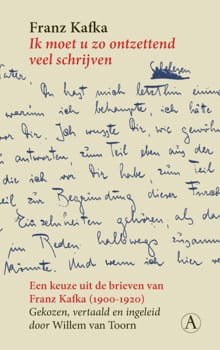 Franz Kafka
Ik moet u zo ontzettend
veel schrijven
Schelesen
ater,
Du hast mich letzthin einma
um ich behaupte, ich hätte
vor Dir. Ich wusste Dir, wie gewöh
antworten, zum Teil eben aus der
die ich vor Dir habe, zum Teil
zur Begründung dieser Furch
Einzelnheiten gehören, als da
im Reden halbwegs zusamm
könnte. Und wenn ich hier
Een keuze uit de brieven van
Franz Kafka (1900-1920)
Gekozen, vertaald en ingeleid
door Willem van Toorn
A